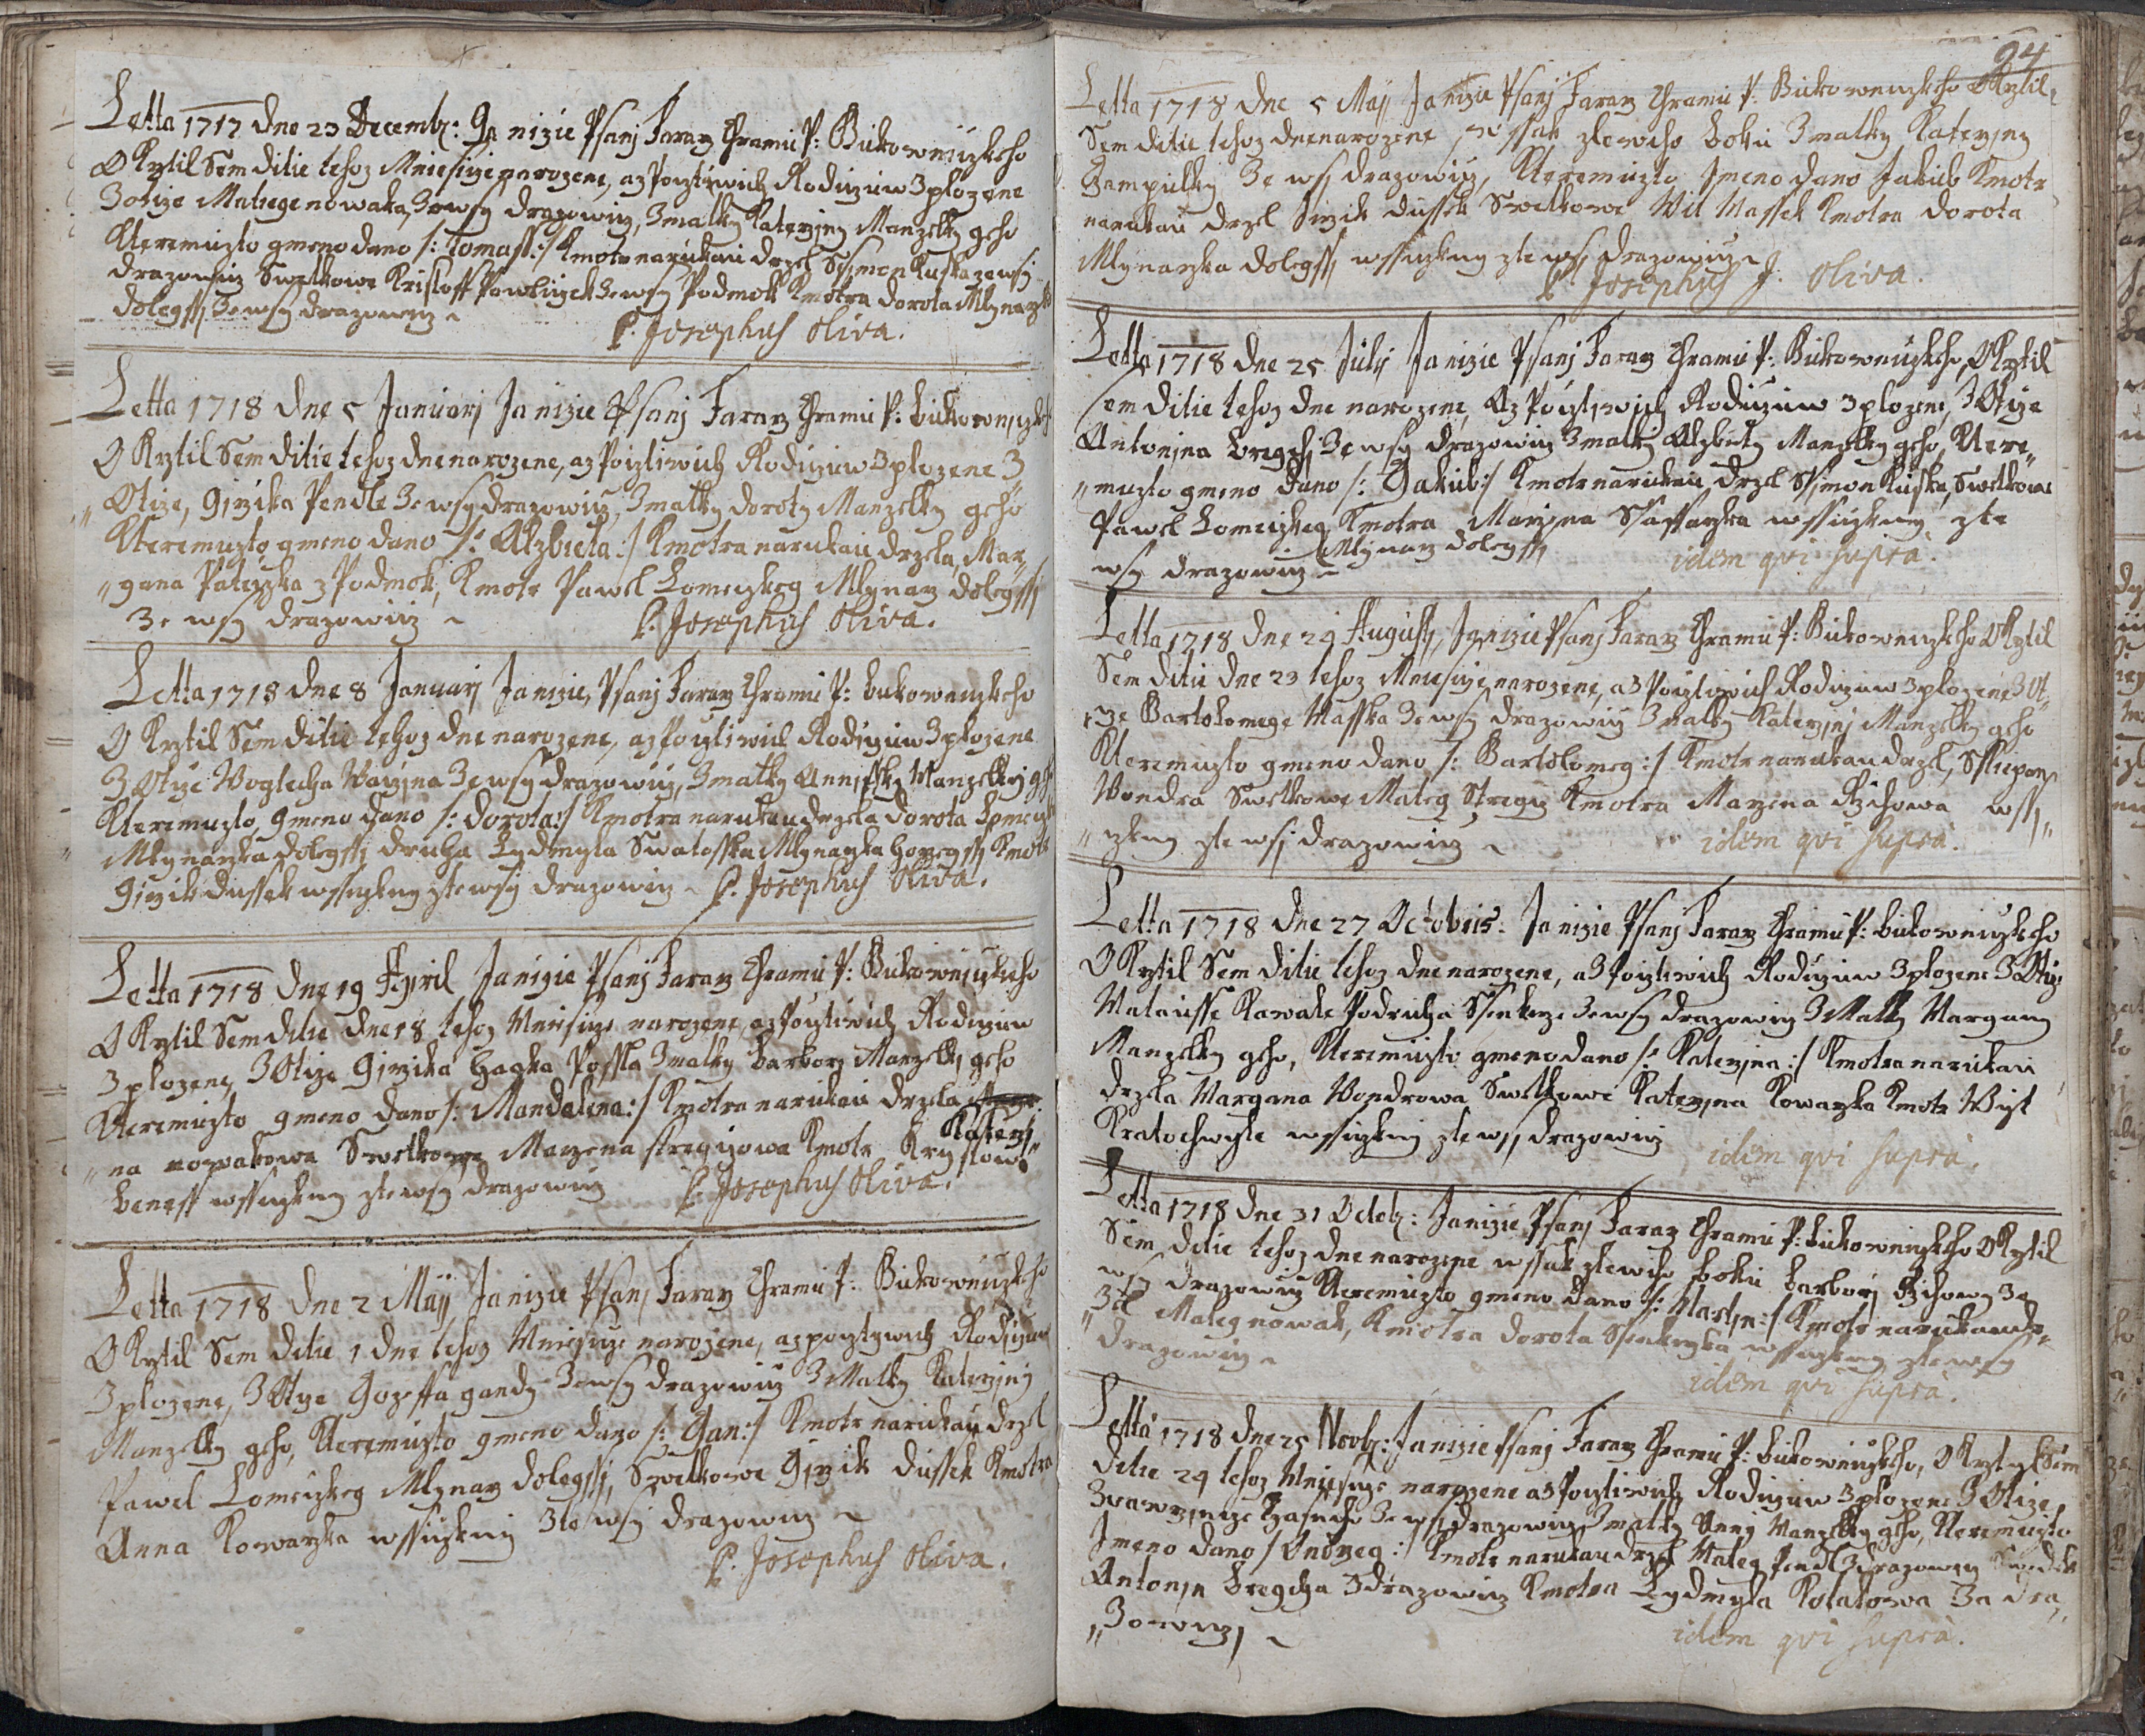 Letta 1717 dne 23 Decembr: Ja nizie Psanj Faraz Chramu P: Bukowniczkeho
O Krztil Sem ditie tehoz Mniesicze narozene, az Pocztiwich Rodiczuw Zplozene
Z otcze Matiege nowaka, Zewsy drazowicz, Z matky Katerziny Manzelky geho
Kteremuzto gmeno dano /: Tomass :/ Kmotr narukau drzel Ssimon Kuska zewsy
drazowicz Swetkowe Kristoff Pawliczek Zewsy Podmok Kmotra dorota Mlynarzka
dolegssj Zewsy drazowicz
P. Josephus Oliva.
Letta 1718 dne 5 Januarj Ja nizie Psanj Faraz Chramu P: bukowniczkeho
O Krztil Sem ditie tehoz dne narozene, az Pocztiwich Rodiczuw Zplozene Z
Otcze, Girzika Pendle Ze wsy drazowicz, Z matky doroty Manzelky geho
Kteremuzto gmeno dano /: Alzbieta :/ Kmotra narukau drzela, Mar„
„gana Pateyzka z Podmok, Kmotr Pawel Lomeczkeg Mlynarz dolegssj
Ze wsy drazowicz
P. Josephus Oliva.
Letta 1718 dne 8 Januarj Ja nizie, Psanj Faraz Chramu P: bukowenczkeho
O Krztil Sem ditie tehoz dne narozene, az Pocztiwich Rodiczuw Zplozene
Z Otcze Woglecha Ze wsy drazowicz, Z matky Manzelky geho
Kteremuzto, gmeno dano /: dorota :/ Kmotra narukau drzela dorota
Mlynarzka dolegssj druha Lydmyla Swatosska Mlynarzka horzegssj Kmotr
Girzik dussek wssiczkny ztewsy drazowicz P. Josephus Oliva.
Letta 1718 dne 19 Apryl Ja nizie Psanj Faraz Chramu P: Bukowniczkeho
O Krztil Sem ditie dne 18 tehoz Mniesicze narozene, az Pocztiwich Rodiczuw
Zplozene, Z Otcze Girzika hagka Possla Z matky barbory Manzelky geho
Kteremuzto gmeno dano /: Mandalena :/ Kmotra narukau drzela
Katerzi„
„na nowakowa Swetkowe Marzena stregczowa Kmotr Krystow
beness wssiczkny ztewsy drazowicz P. Josephus Oliva.
Letta 1718 dne 2 Maij Ja nizie Psanj Faraz Chramu P: Bukowniczkeho
O Krztil Sem ditie 1 dne tehoz Mniesicze narozene, az poczтywich Rodiczuw
Zplozene, Z Otcze Gozeffa gandy Zewsy drazowicz Z Matky Katerziny
Manzelky geho, Kteremuzto gmeno dano /: Gan :/ Kmotr narukau drzel
Pawel Lomeczkeg Mlynarz dolegssj, Swetkowe Girzik dussek Kmotra
Anna Kowarzka wssiczkny Zte wsy drazowicz
P. Josephus Oliva.
94
Letta 1718 dne 5 Maij Ja nizie Psanj Faraz Chramu P: Bukowenczkeho OKrztil
Sem ditie tehoz dne narozene, wssak zleweho boku Z matky Katerziny
Ze wsj drazowicz, Kteremuzto Jmeno dano Jakub Kmotr
narukau drzel Jirzik dussek Swetkowe Wit Massek Kmotra dorota
Mlynarzka dolegssj wssiczkny zte wsj drazowicz
P. Josephus J. Oliva.
Letta 1718 dne 25 Julij Ja nizie Psanj Faraz Chramu P: Bukowniczkeho, OKrztil
Sem ditie tehoz dne narozene, Az Pocztiwich Rodiczuw zplozene, Z Otcze
Antonjna bregchj Ze wsy drazowicz Z matky Alzbiety Manzelky geho, Ktere„
„muzto gmeno dano /: Gakub :/ Kmotr narukau drzel Ssimon Kuska, Swetkowe
Pawel Lomeczkeg Kmotra Marjana wssiczkny zte
Mlynarz dolegssj
wsy drazowicz
idem qvi supra.
Letta 1718 dne 29 Augustj, Ja nizie Psanj Faraz Chramu P: Bukowenczkeho OKrztil
Sem ditie dne 23 tehoz Mniesicze narozene, az Pocztiwich Rodiczuw zplozene Z Ot„
„cze Bartolomege Masska Zewsy drazowicz Z matky Katerzinj Manzelky geho
Kteremuzto gmeno dano /: Bartolomeg :/ Kmotr narukau drzel, Sstiepan
Wondra Swetkowe Mateg Stregcz Kmotra Marzena Rzihowa wssj„
„czkny zte wsj drazowicz
idem qvi supra.
Letta 1718 dne 27 Octobris: Ja nizie Psanj Faraz Chramu P: bukowniczkeho
O Krztil Sem ditie tehoz dne narozene, az Pocztiwich Rodiczuw Zplozene Z Otcze
Matausse Kowale Podruha Ssenkerze Zewsy drazowicz Z Matky Margany
Manzelky geho, Kteremuzto gmeno dano /: Katerzina :/ Kmotra narukau
drzela Margana Wondrowa Swetkowe Katerzina Kowarzka Kmotr Wyt
Kratochwyle wssiczkny zte wsj drazowicz
idem qvi supra.
Letta 1718 dne 31 Octobr: Ja nizie Psanj Faraz Chramu P: bukowniczkeho OKrztil
Sem ditie tehoz dne narozene wssak zleweho boku barbory Rzihowy Ze
wsy drazowicz Kteremuzto gmeno dano /: Martin :/ Kmotr narukau dr„
„zel Mateg nowak, Kmotra dorota Ssenkerzka wssiczkny ztewsy
drazowicz
idem qvi supra.
Letta 1718 dne 25 Novbr: Ja nizie Psanj Faraz Chramu P: bukowniczkeho, OKrztyl Sem
ditie 24 tehoz Mniesicze narozene az Pocztiwich Rodiczuw zplozene Z Otcze,
Zwawrzince Ze wsj drazowicz Z matky Annj Manzelky geho, Kteremuzto
Jmeno dano /: Ondrzeg :/ Kmotr narukau drzel Mateg Pendl Z drazowicz Swedek
Antonjn bregcha Z drazowicz Kmotra Lydmyla Kolatowa Za dra„
„zowicz
idem qvi supra.